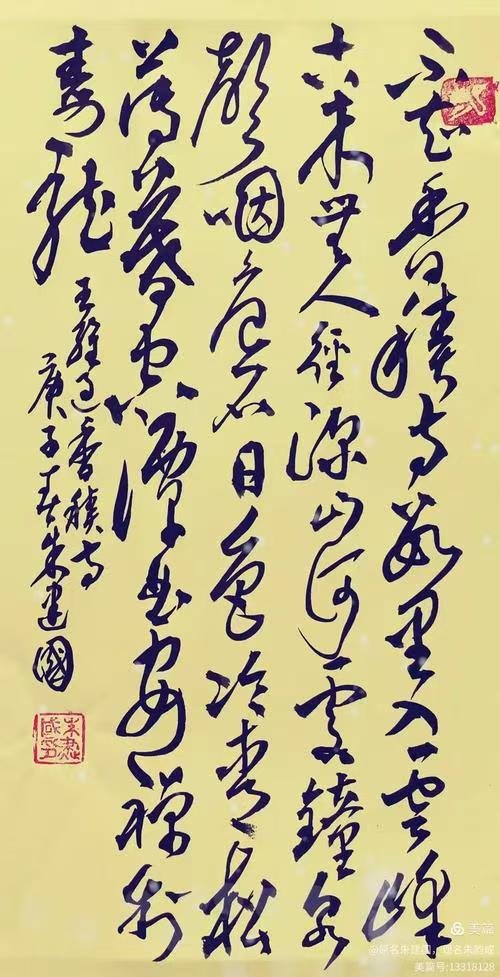 不知香積寺數里入雲峰
古木無人徑深山何處鐘泉
聲咽危石日色冷青松
薄暮空潭曲安禪制
毒龍
王維過香積寺
庚子春朱建國
美篇
@原名朱建国,现名朱
美篇号:13318128